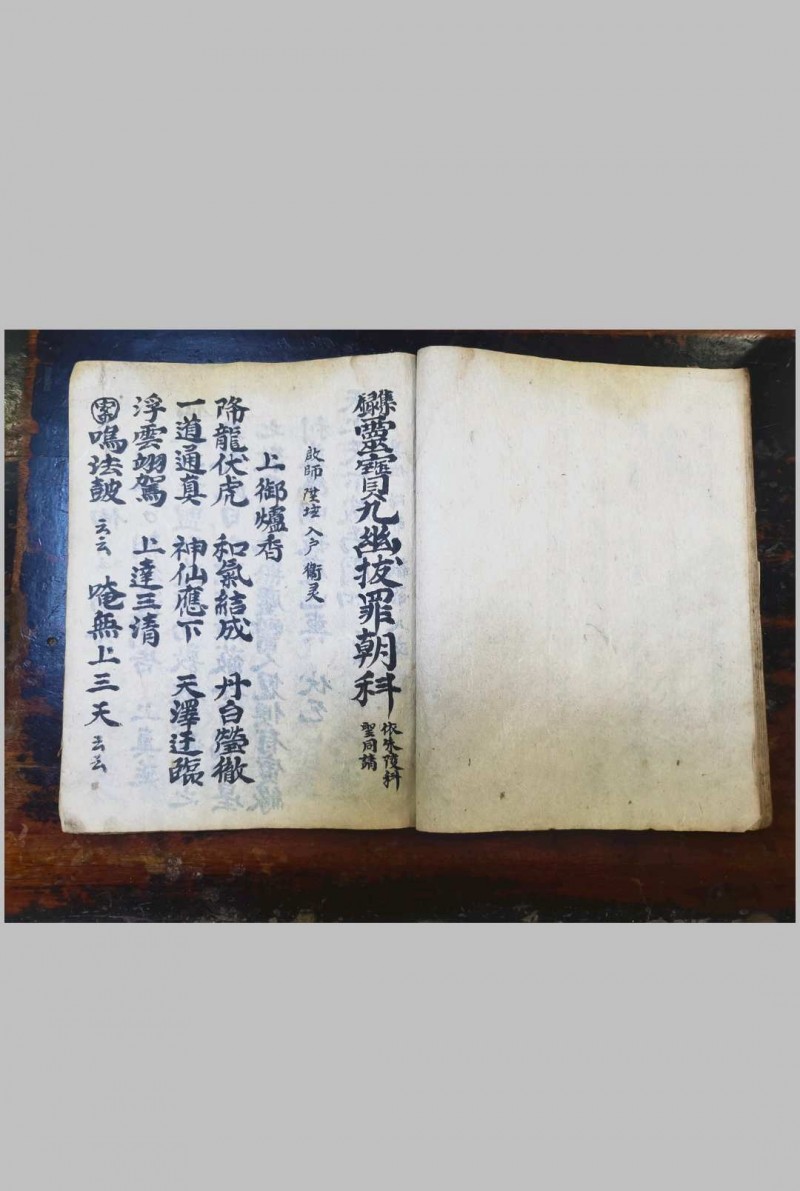 靈寶九幽拔罪朝科 依朱陵科聖同請
啟師 陞坛 入户 衛灵
上御爐香
降龍伏虎 和氣結成 丹白瑩徹
一道通真 神仙應下 天澤迂臨
浮雲翊駕 上達三清
鳴法鼓 云云 唵無上三天 云云